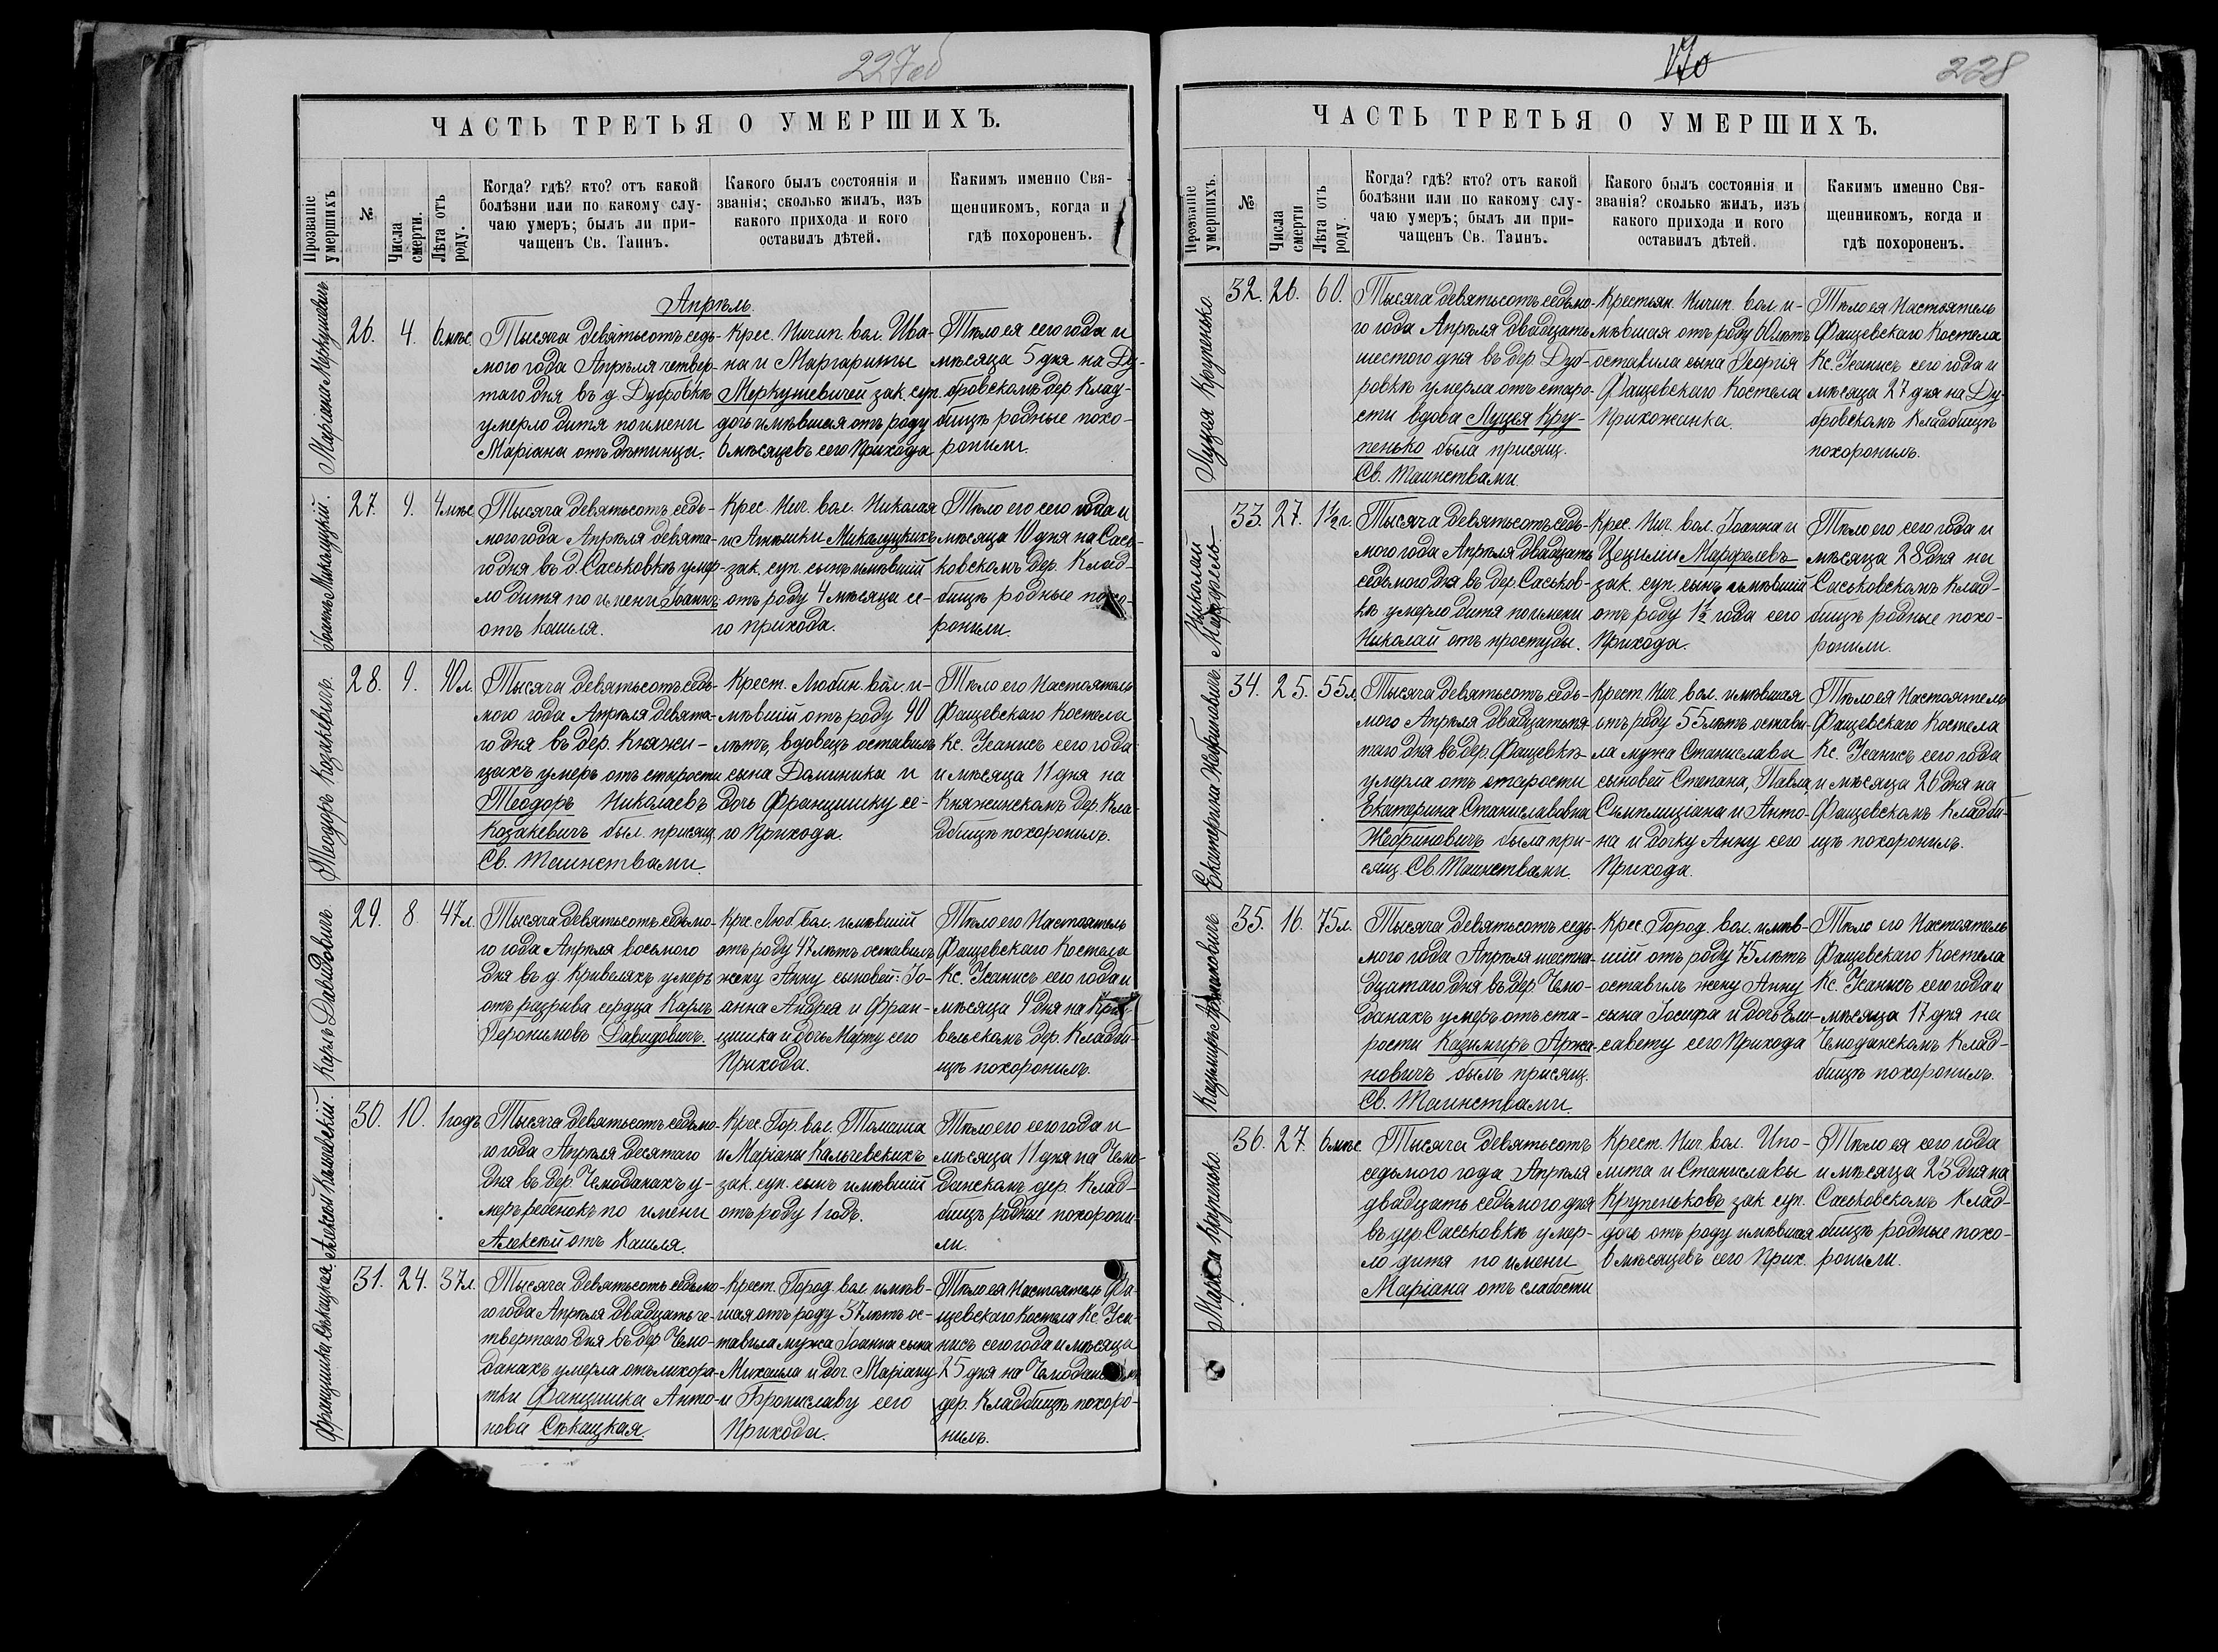 227об
ЧАСТЬ ТРЕТЬЯ О УМЕРШИХЪ.
Прозваніе умершихъ
№
Числа смерти.
Лѣта отъ роду.
Когда? гдѣ? кто? отъ какой
болѣзни или по какому слу-
чаю умеръ; былъ ли при-
чащенъ Св. Таинъ.
Какого былъ состоянія и
званія; сколько жилъ, изъ
какого прихода и кого
оставилъ дѣтей.
Какимъ именно Свя-
щенникомъ, когда и
гдѣ похороненъ.
Апрѣль.
Маріана Меркушевичъ
26.
4.
6 мѣс.
Тысяча девятьсотъ седь-
мого года Апрѣля четвер-
таго дня въ д. Дубровкѣ
умерло дитя по имени
Маріана отъ дѣтинца.
Крес. Ничип. вол. Ива-
на и Маргариты
Меркушевичей зак. суп.
дочь имѣвшая отъ роду
6 мѣсяцевъ сего Прихода
Тѣло ея сего года и
мѣсяца 5 дня на Ду-
бровскомъ дер. Клад-
бищѣ родные похо-
ронили.
Іоаннъ Миколуцкій.
27.
9.
4 мѣс
Тысяча девятьсотъ седь-
мого года Апрѣля девята-
го дня въ д. Саськовкѣ умер-
ло дитя по имени Іоаннъ
отъ кашля.
Крес. Нич. вол. Николая
и Агнешки Миколуцкихъ
зак. суп. сынъ имѣвшій
отъ роду 4 мѣсяца се-
го прихода.
Тѣло его сего года и
мѣсяца 10 дня на Сась-
ковскомъ дер. Клад-
бищѣ родные похо-
ронили.
Теодоръ Казакевичъ.
28.
9.
90 л.
Тысяча девятьсотъ седь-
мого года Апрѣля девята-
го дня въ дер. Княжи-
цахъ умеръ отъ старости
Теодоръ Николаевъ
Казакевичъ был. присящ.
Св. Таинствами.
Крест. Любин. вол. и-
мѣвшій отъ роду 90
лѣтъ, вдовецъ оставилъ
сына Доминика и
дочь Францишку се-
го Прихода.
Тѣло его Настоятель
Фащевскаго Костела
Кс. Усанисъ сего года
и мѣсяца 11 дня на
Княжинскомъ дер. Кла-
дбищѣ похоронилъ.
Карлъ Давидовичъ.
29.
8.
47 л.
Тысяча девятьсотъ седьмо-
го года Апрѣля восьмого
дня въ д. Кривеляхъ умеръ
отъ разрыва сердца Карлъ
Геронимовъ Давидовичъ.
Крес. Люб. вол. имѣвшій
отъ роду 47 лѣтъ оставилъ
жену Анну сыновей: Іо-
анна Андрея и Фран-
цишка и дочь Марту сего
Прихода.
Тѣло его Настоятель
Фащевскаго Костела
Кс. Усанисъ сего года и
мѣсяца 9 дня на Кри-
вельскомъ дер. Кладби-
щѣ похоронилъ.
Алексѣй Кальчевскій.
30.
10.
1 годъ
Тысяча девятьсотъ седьмо-
го года Апрѣля десятаго
дня въ дер. Чемоданахъ у-
меръ ребенокъ по имени
Алексѣй отъ Кашля.
Крес. Гор. вол. Томаша
и Маріаны Кальчевскихъ
зак. суп. сынъ имѣвшій
отъ роду 1 годъ.
Тѣло его сего года и
мѣсяца 11 дня на Чемо-
данскомъ дер. Клад-
бищѣ родные похорони-
ли.
Францишка Сѣкацкая.
31.
24.
37 л.
Тысяча девятьсотъ седьмо-
го года Апрѣля двадцать че-
твертаго дня въ дер. Чемо-
данахъ умерла отъ лихора-
тки Францишка Анто-
нова Сѣкацкая.
Крест. Город. вол. имѣв-
шая отъ роду 37 лѣтъ ос-
тавила мужа Іоанна сына
Михаила и доч. Маріану
и Брониславу сего
Прихода.
Тѣло ея Настоятель Фа-
щевскаго Костела Кс. Уса-
нисъ сего года и мѣсяца
25 дня на
дер. Кладбищѣ похоро-
нилъ.
170
228
ЧАСТЬ ТРЕТЬЯ О УМЕРШИХЪ.
Прозваніе умершихъ.
№
Числа смерти
Лѣта отъ роду.
Когда? гдѣ? кто? отъ какой
болѣзни или по какому слу-
чаю умеръ; былъ ли при-
чащенъ Св. Таинъ.
Какого былъ состоянія и
званія? сколько жилъ, изъ
какого прихода и кого
оставилъ дѣтей.
Какимъ именно Свя-
щенникомъ, когда и
гдѣ похороненъ.
Луцея Крупенько
32.
26.
60.
Тысяча девятьсотъ седьмо-
го года Апрѣля двадцать
шестого дня въ дер. Дуб-
ровкѣ умерла отъ старо-
сти вдова Луцея Кру-
пенько была присящ.
Св. Таинствами.
Крестьян. Ничип. вол. и-
мѣвшая отъ роду 60 лѣтъ
оставила сына Георгія
Фащевскаго Костела
Прихожанка.
Тѣло ея Настоятель
Фащевскаго Костела
Кс. Усанисъ сего года и
мѣсяца 27 дня на Ду-
бровскомъ Кладбищѣ
похоронилъ.
Николай Марфель.
33.
27.
1½ г.
Тысяча девятьсотъ седь-
мого года Апрѣля двадцать
седьмого дня въ дер Саськов-
кѣ умерло дитя по имени
Николай отъ простуды.
Крес. Нич. вол. Іоанна и
Цециліи Марфелевъ
зак. суп. сынъ имѣвшій
отъ роду 1½ года сего
Прихода.
Тѣло его сего года и
мѣсяца 28 дня на
Саськовскомъ Клад-
бищѣ родные похо-
ронили.
Екатерина Жебриновичъ.
34.
25.
55 л.
Тысяча девятьсотъ седь-
мого Апрѣля двадцать пя-
таго дня въ дер. Фащевкѣ
умерла отъ старости
Екатерина Станиславовна
Жебриновичъ была при-
сящ. Св. Таинствами.
Крест. Нич. вол. имѣвшая
отъ роду 55 лѣтъ остави-
ла мужа Станислава
сыновей Степана, Павла,
Симплиціана и Анто-
на и дочку Анну сего
Прихода.
Тѣло ея Настоятель
Фащевскаго Костела
Кс. Усанисъ сего года
и мѣсяца 26 дня на
Фащевскомъ Кладби-
щѣ похоронилъ.
Казимиръ Аржановичъ
35.
16.
75 л.
Тысяча девятьсотъ седь-
мого года Апрѣля шестна-
дцатаго дня въ дер. Чемо-
данахъ умеръ отъ ста-
рости Казимиръ Аржа-
новичъ былъ присящ.
Св. Таинствами.
Крес. Город. вол. имѣв-
шій отъ роду 75 лѣтъ
оставилъ жену Анну
сына Іосифа и дочь Ели-
савету сего Прихода
Тѣло его Настоятель
Фащевскаго Костела
Кс. Усанисъ сего года и
мѣсяца 17 дня на
Чемоданскомъ Клад-
бищѣ похоронилъ.
36.
27.
6 мѣс.
Тысяча девятьсотъ
седьмого года Апрѣля
двадцать седьмого дня
въ дер Саськовкѣ умер-
ло дитя по имени
Маріана отъ слабости
Крест. Нич. вол. Ипо-
лита и Станиславы
Крупеньковъ зак суп.
дочь отъ роду имѣвшая
6 мѣсяцевъ сего Прих.
Тѣло ея сего года
и мѣсяца 23 дня на
Саськовскомъ Клад-
бищѣ родные похо-
ронили.